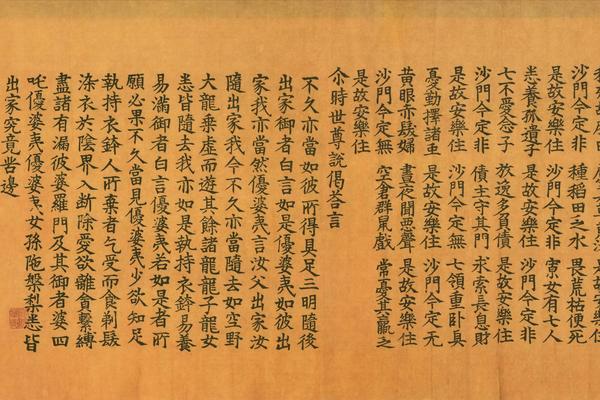 沙門今定非 種稻田之水 畏荒枯便死
是故安樂住 沙門今定非 寡女有七人
悉養孤遺子 是故安樂住 沙門今定非
七不愛念子 放逸多負債 是故安樂住
沙門今定非 債主守其門 求索長息財
是故安樂住 沙門今定無 七領重卧具
憂勤擇諸虫 是故安樂住 沙門今定无
黄眼赤髮婦 晝夜聞惡聲 是故安樂住
沙門今定無 空倉群鼠戲 常憂其羸乏
是故安樂住
尒時世尊說偈答言
不久亦當如彼所得具足三明隨後
出家御者白言如是優婆夷如彼出
家我亦當然優婆夷言汝父出家汝
隨出家我今不久亦當隨去如空野
大龍乗虛而遊其餘諸龍龍子龍女
悉皆隨去我亦如是執持衣鉢易養
易滿御者白言優婆夷若如是者所
願必果不久當見優婆夷少欲知足
執持衣鉢人所棄者乞受而食剃髮
染衣於陰界入斷除愛欲離貪繫縛
盡諸有漏彼婆羅門及其御者婆四
吒優婆夷優婆夷女孫陁槃梨悉皆
出家究竟苦邊